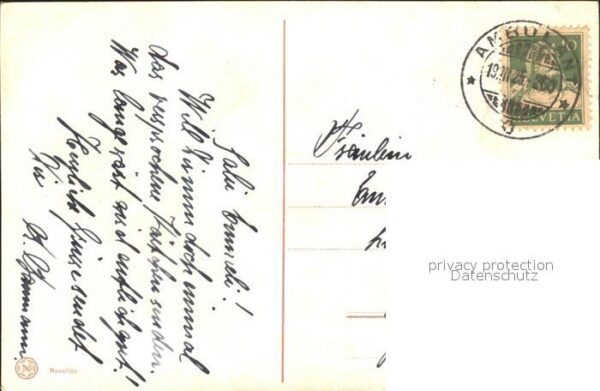 Salü Emmeli!
Will Dir nun doch einmal
das versprochene Kärtchen senden.
Was lange währt wird endlich gut!
Herzliche Grüsse sendet
Dir
AMBULANT
10
HELVETIA
Fräulein
privacy protection
Datenschutz
Novolito